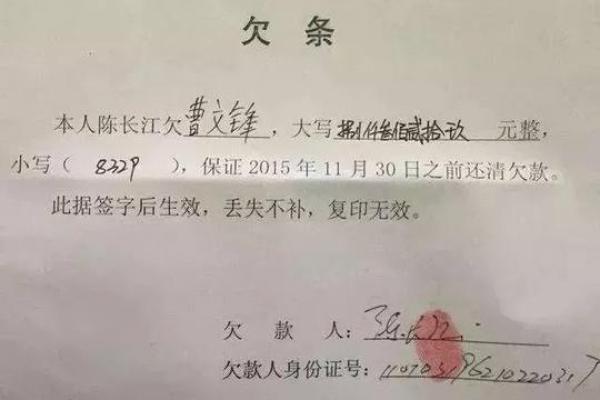 欠 条
本人陈长江欠曹文锋，大写捌仟叁佰贰拾玖 元整，
小写（ 8329 ），保证 2015 年 11 月 30 日之前还清欠款。
此据签字后生效，丢失不补，复印无效。
欠 款 人：陈长江
欠款人身份证号：